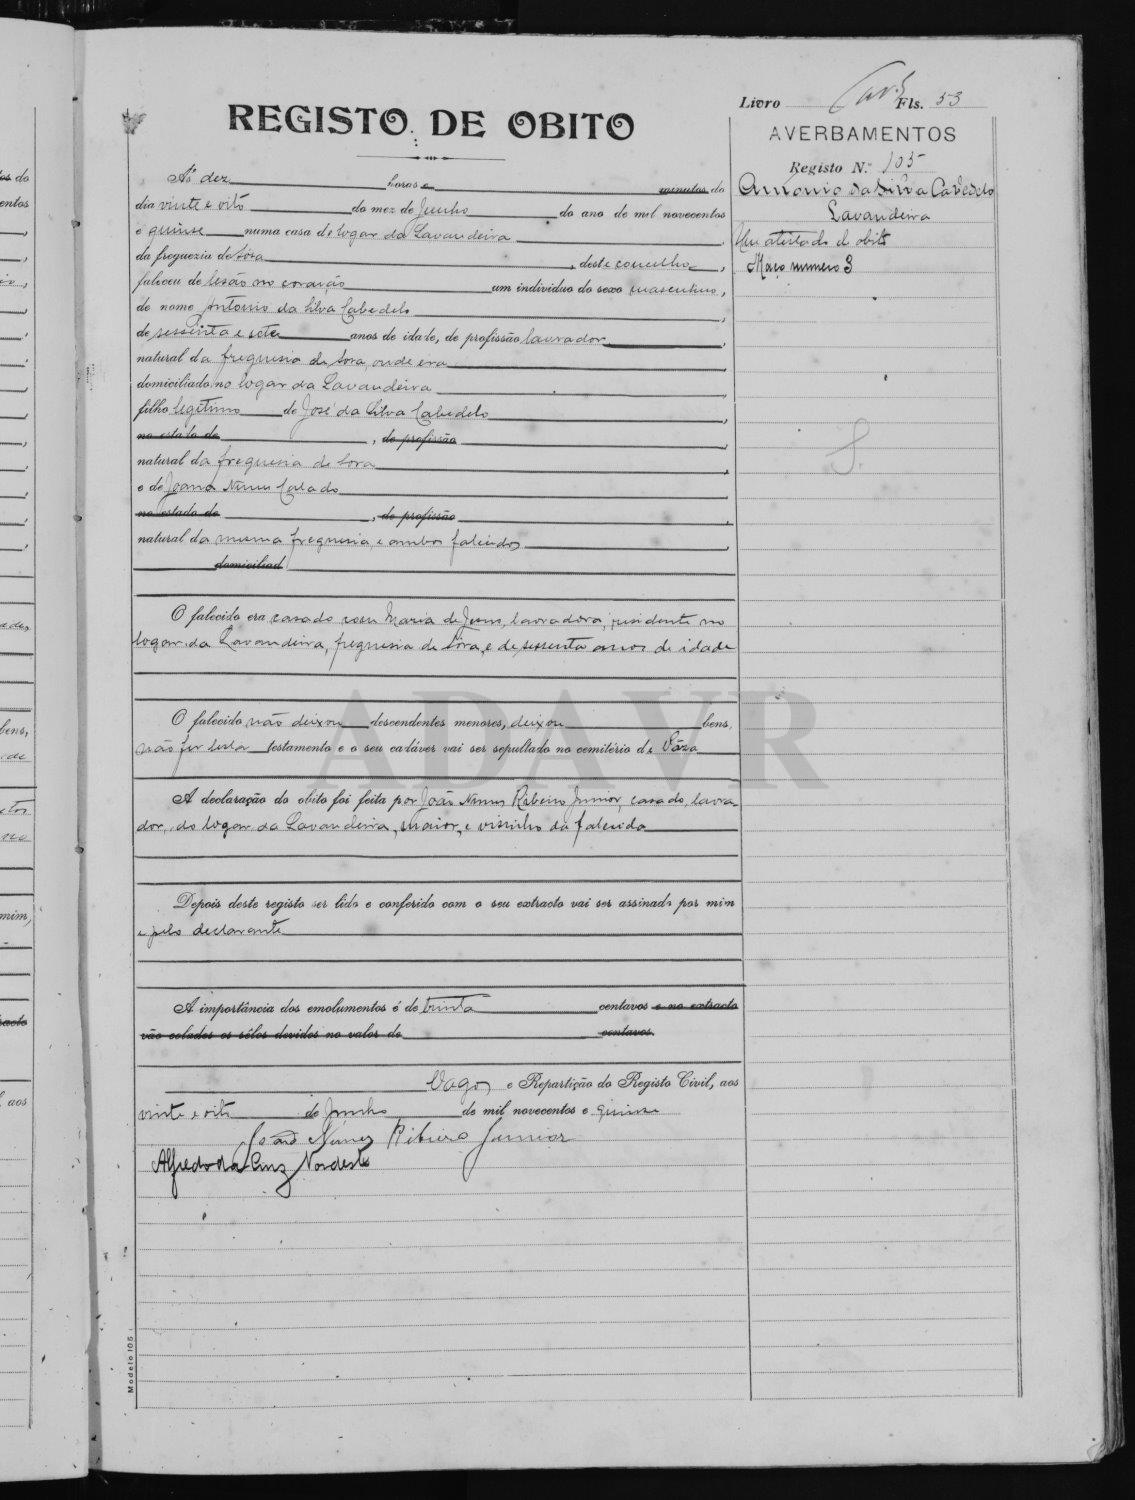 REGISTO DE OBITO
Livro Fls. 53
AVERBAMENTOS
Registo N.º 105
António da Silva Cavedelo
Lavandeira
Um atestado d obito
Maço numero 3
Ás dez horas e minutos do
dia vinte e oito do mez de Junho do ano de mil novecentos
e quinse numa casa do logar da Lavandeira,
da freguezia de Sôza, deste concelho,
faleceu de lesão no coração um individuo do sexo masculino,
de nome António da Silva Cabedelo,
de sessenta e sete anos de idade, de profissão lavrador,
natural da freguesia de Soza, onde era
domiciliado, no logar da Lavandeira,
filho legitimo de José da Silva Cabedelo,
no estado de, de profissão,
natural da freguesia de Soza,
e de Joana Nunes Calado
no estado de, de profissão,
natural da mesma freguesia, e ambos falecidos,
domiciliad
O falecido era casado com Maria de Jesus, lavradora, residente no
logar da Lavandeira, freguesia de Sôza, e de sessenta anos de idade
O falecido não deixou descendentes menores, deixou bens,
não fez testamento e o seu cadáver vai ser sepultado no cemitério de Sôza
A declaração do obito foi feita por João Nunes Ribeiro Junior, casado, lavra-
dor, do logar da Lavandeira, maior, e visinho do falecido
Depois deste registo ser lido e conferido com o seu extracto vai ser assinado por mim
e pelo declarante
A importância dos emolumentos é de trinta centavos e no extracto
vão colados os sêlos devidos no valor de centavos.
Vagos e Repartição do Registo Civil, aos
vinte e oito de Junho de mil novecentos e quinse
João Nunes Ribeiro Junior
Alfredo da Cruz Nordeste
ADAVR
Modelo 105